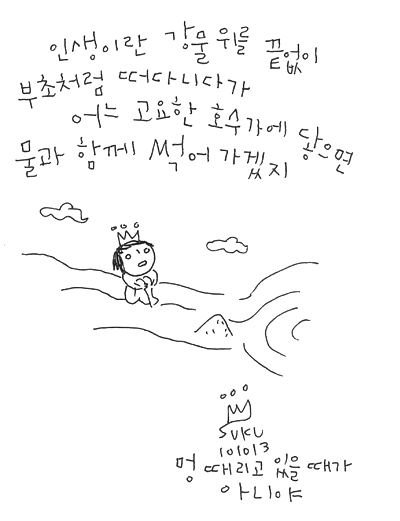 인생이란 강물 위를 끝없이
부초처럼 떠다니다가
어느 고요한 호숫가에 닿으면
물과 함께 썩어 가겠지
SUKU
101013
멍 때리고 있을 때가
아니야